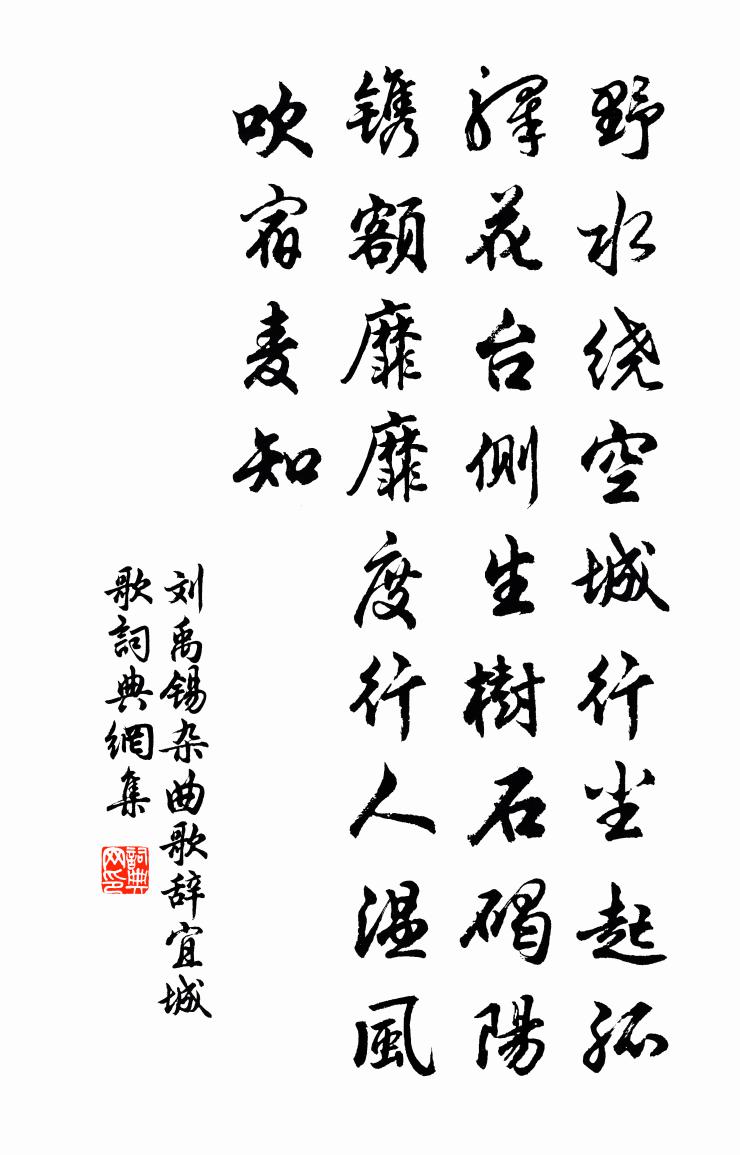 野水绕空城行尘起孤
驛花台侧生樹石碣陽
镌额靡靡度行人温風
吹宿麦知
刘禹锡杂曲歌辞宜城
歌詞典網集
詞典网印